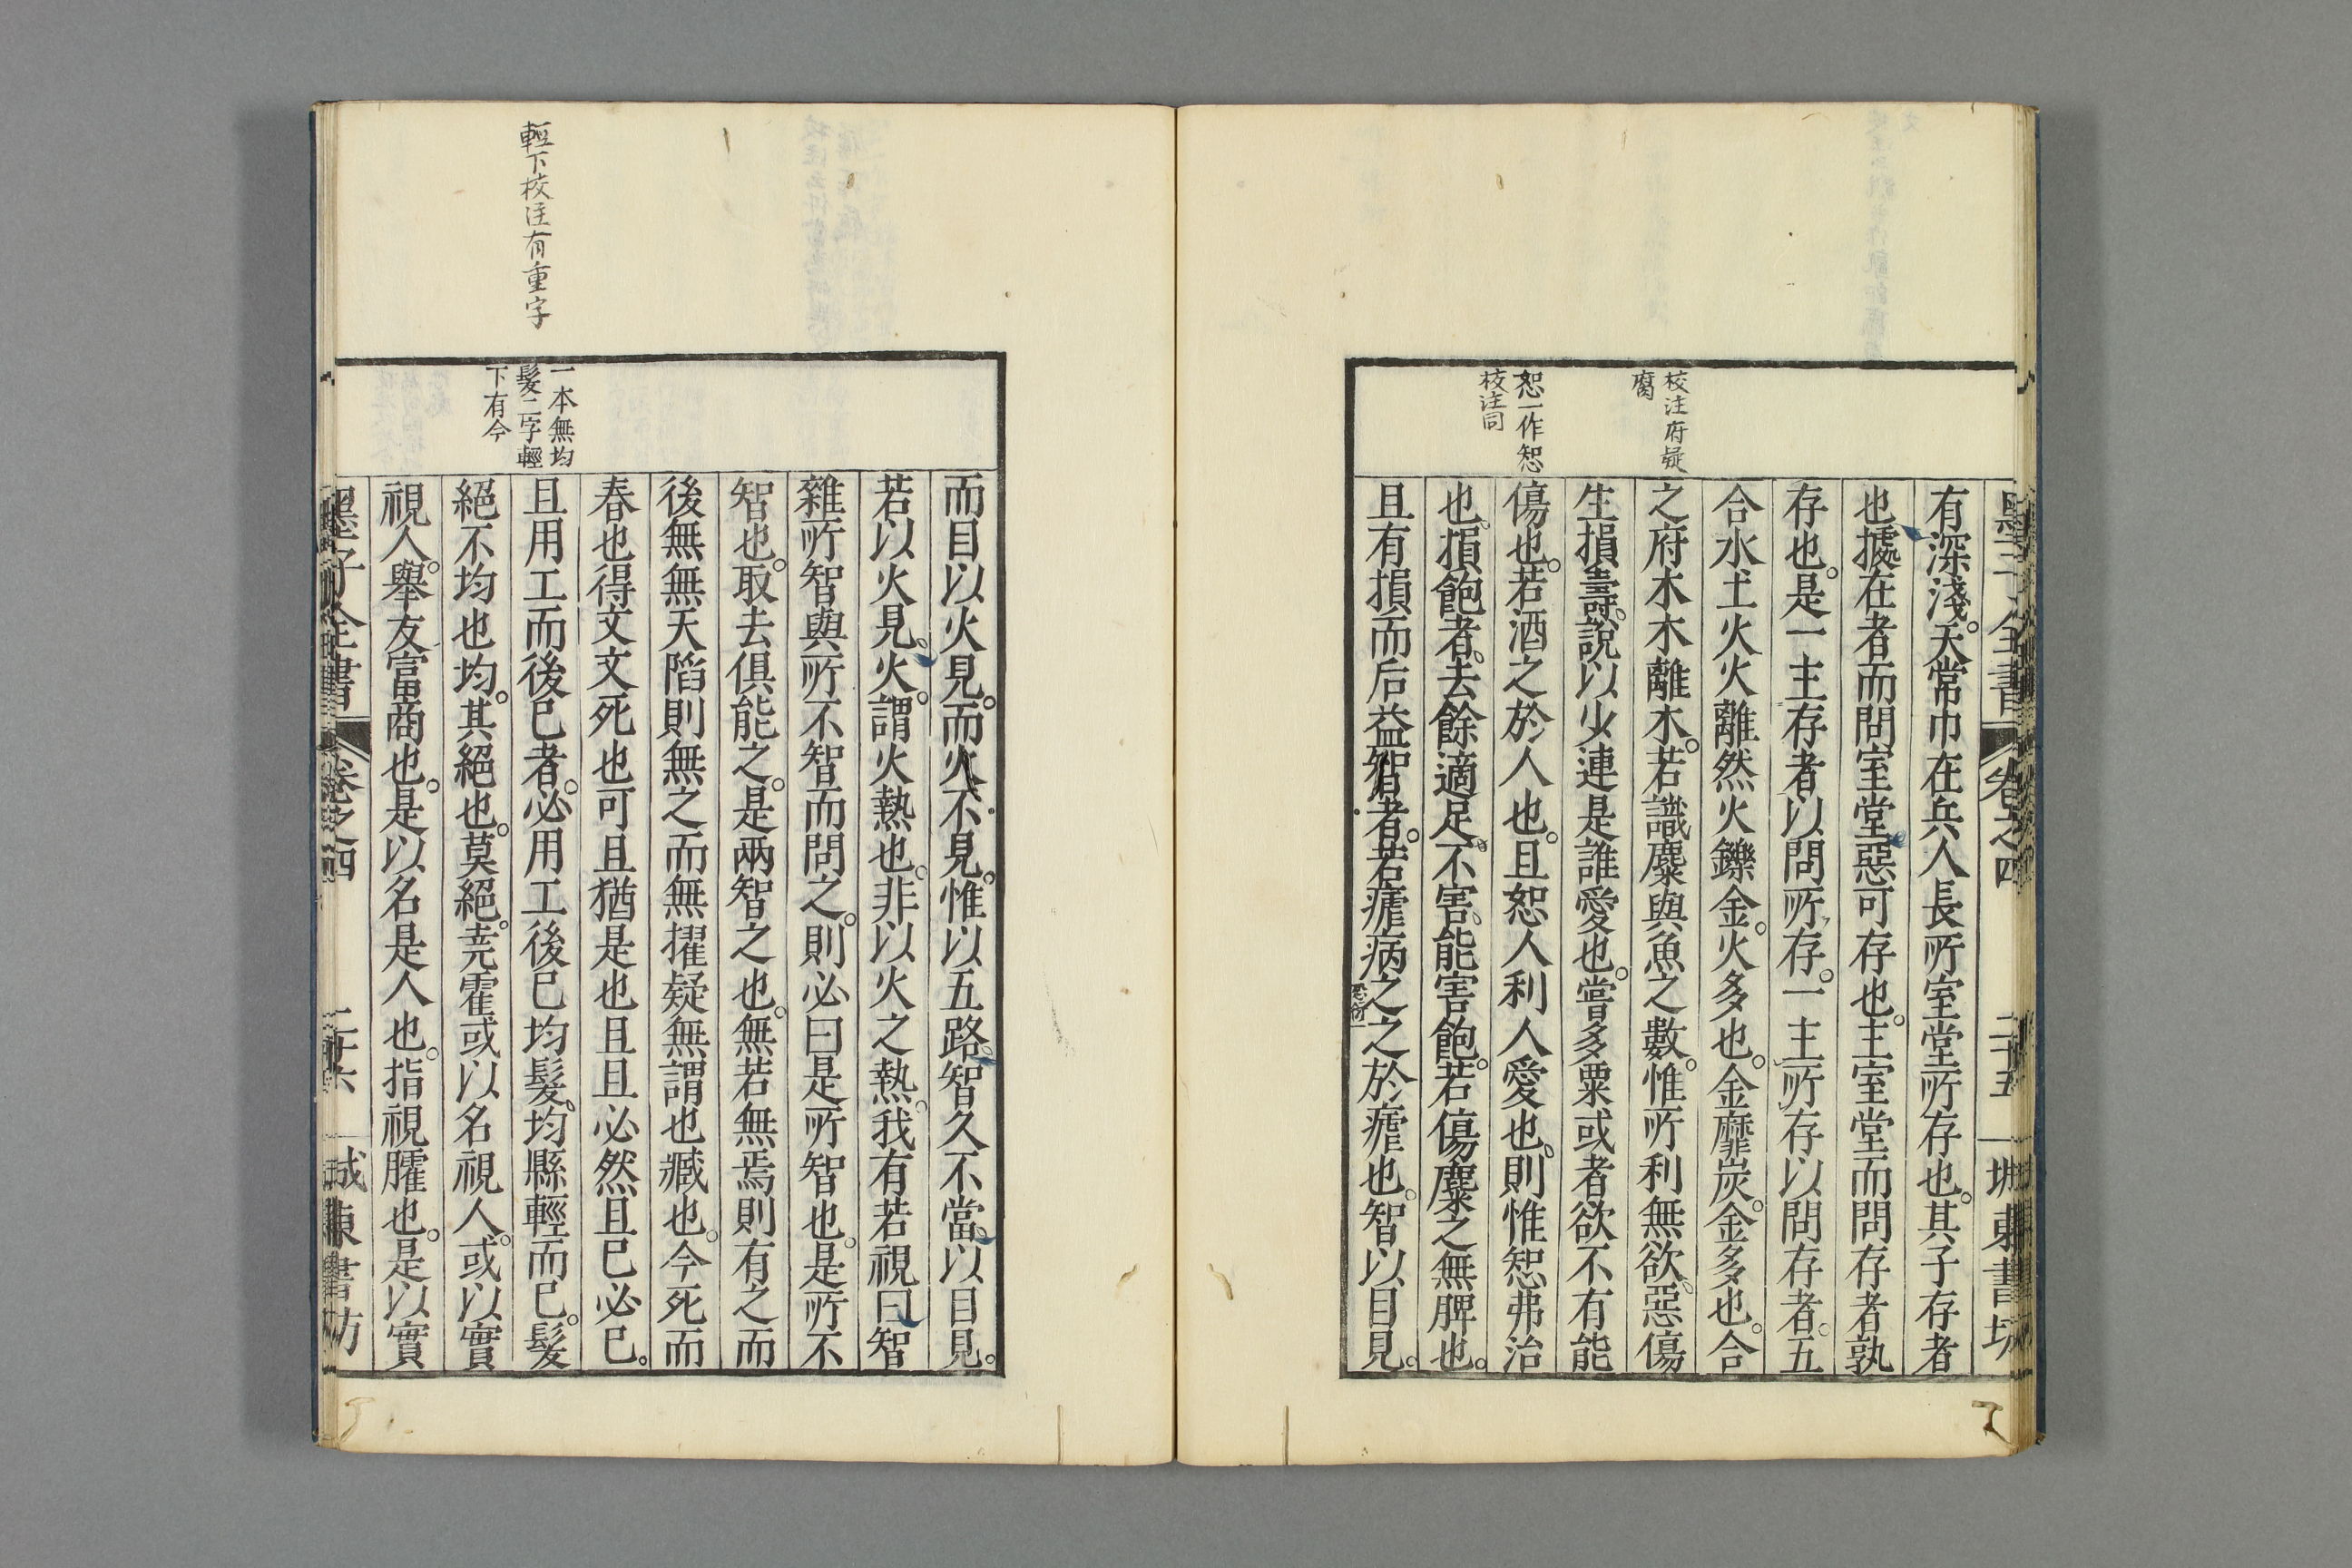 墨子全書 卷之四 二十五 城東書坊
有深淺。天常巾在兵人長所室堂所存也。其子存者
也據在者而問室堂惡可存也。主室堂而問存者孰
存也。是一主存者以問所存。一主所存以問存者。五
合水土火火離然火鑠金。火多也。金靡炭。金多也。合
之府木木離木。若識麋與魚之數。惟所利無欲惡傷
生損壽。說以少連是誰愛也。嘗多粟或者欲不有能
傷也。若酒之於人也。且恕人利人愛也。則惟恕弗治
也。損飽者。去餘適足。不害。能害飽。若傷麋之無脾也。
且有損而后益智者。若瘧病之之於瘧也。智以目見。
校注府疑
腐
恕一作恕
校注同
而目以火見。而火不見。惟以五路。智久不當。以目見。
若以火見。火。謂火熱也。非以火之熱。我有若視曰智
雜所智與所不智而問之。則必曰是所智也。是所不
智也。取去俱能之。是兩智之也。無若無焉則有之而
後無無天陷則無之而無擢疑無謂也臧也。今死而
春也得文文死也可且猶是也且且必然且已必已。
且用工而後已者。必用工後已均髮。均縣輕而已。髮
絕不均也均。其絕也。莫絕。堯霍或以名視人。或以實
視人。舉友富商也。是以名是人也。指視臛也。是以實
輕下校注有重字
一本無均
髮二字輕
下有今
墨子全書 卷之四 二十六 城東書坊